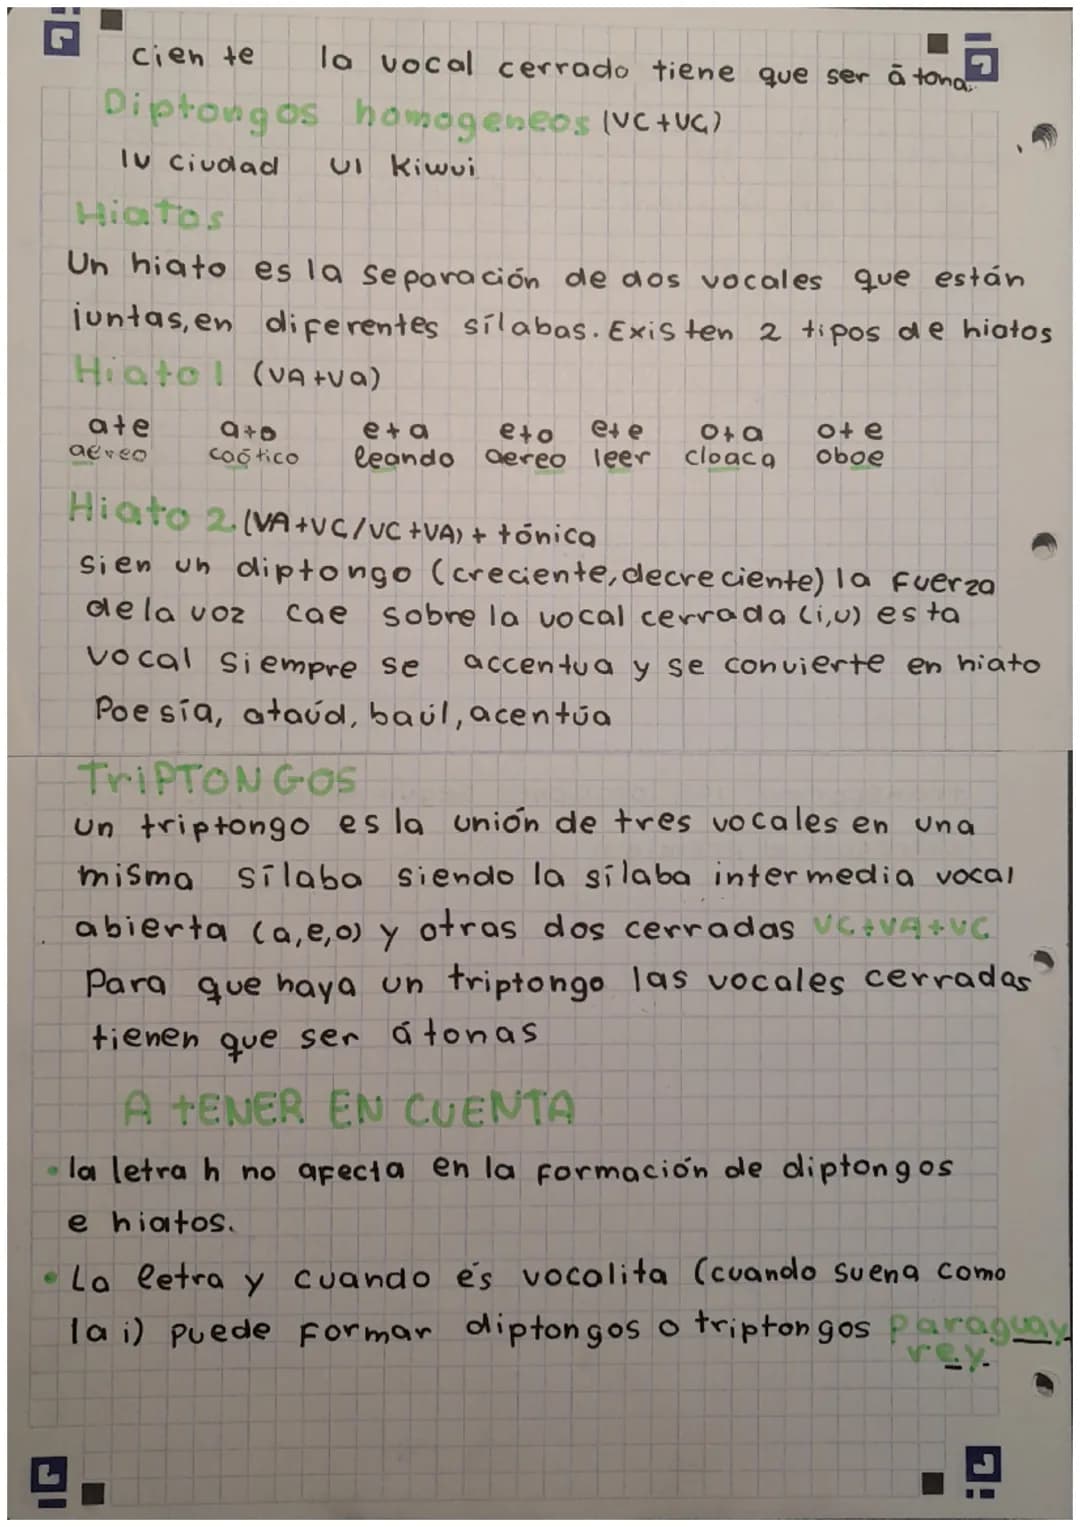 cien te la vocal cerrado tiene que ser átona.
Diptongos homogeneos (VC+VC)
IU ciudad UI Kiwui
Hiatos
Un hiato es la separación de dos vocales que están
juntas, en diferentes sílabas. Existen 2 tipos de hiatos
Hiato 1 (VA+Va)
a+e a+o e+a e+o e+e o+a o+e
aéreo caótico leando aereo leer cloaca oboe
Hiato 2 (VA+VC/VC+VA) + tónica
si en un diptongo (creciente, decreciente) la fuerza
de la voz cae sobre la vocal cerrada (i,u) esta
vocal siempre se accentua y se convierte en hiato
Poesía, ataúd, baúl, acentúa
TriPTONGOS
un triptongo es la unión de tres vocales en una
misma sílaba siendo la sílaba intermedia vocal
abierta (a,e,o) y otras dos cerradas VC+VA+VC
Para que haya un triptongo las vocales cerradas
tienen que ser átonas
A tENER EN CUENTA
• la letra h no afecta en la formación de diptongos
e hiatos.
• La letra y cuando és vocalita (cuando suena como
la i) puede formar diptongos o triptongos Paraguay
rey.